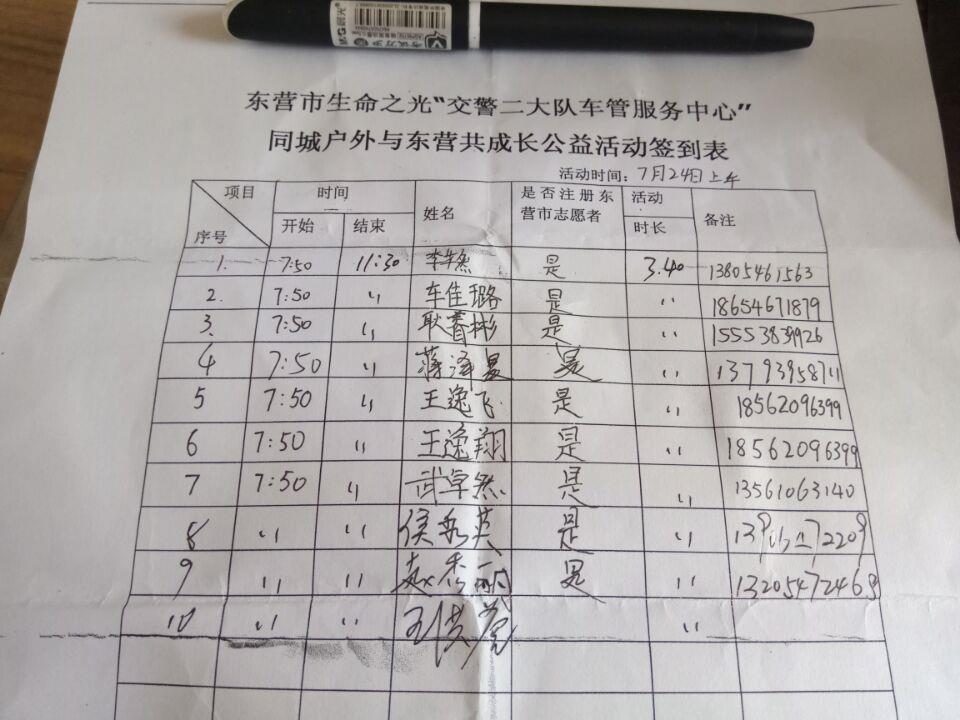 东营市生命之光“交警二大队车管服务中心”
同城户外与东营共成长公益活动签到表
活动时间：7月24日上午
项目 时间 姓名 是否注册东营市志愿者 活动时长 备注
序号 开始 结束
1. 7:50 11:30 李 然 是 3.40 13805461563
2. 7:50 〃 车佳璐 是 〃 18654671879
3. 7:50 〃 耿睿彬 是 〃 15553839926
4 7:50 〃 蒋泽昊 是 〃 13793958711
5 7:50 〃 王逸飞 是 〃 18562096399
6 7:50 〃 王逸翔 是 〃 18562096399
7 7:50 〃 武卓然 是 〃 13561063140
8 〃 〃 侯秀英 是 〃
9 〃 〃 赵秀丽 是 〃 13205472468
10 〃 〃 王洪 〃